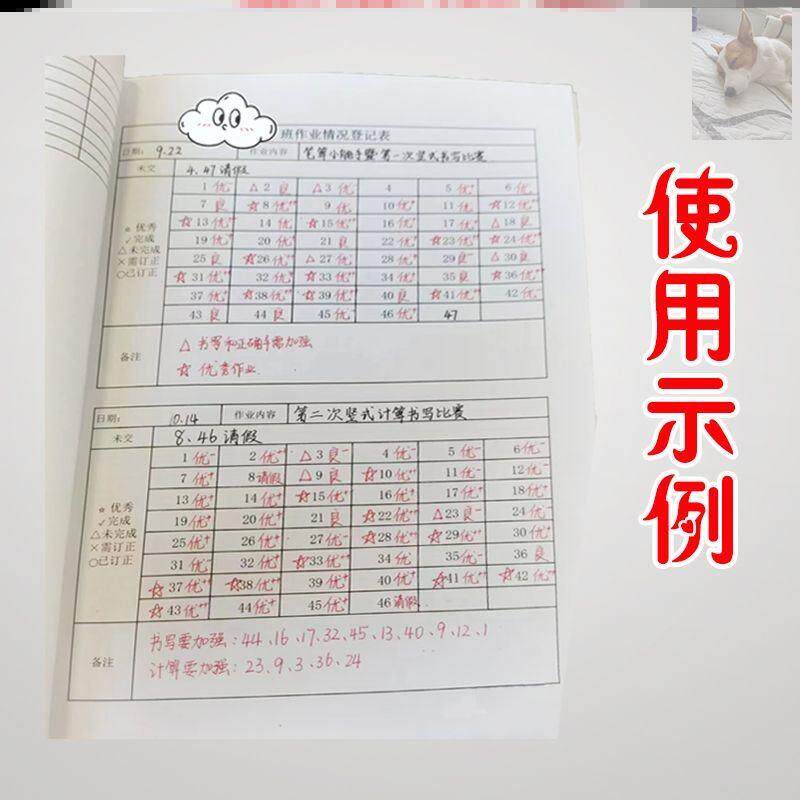 班作业情况登记表
日期: 9.22 作业内容 笔算小能手暨第一次竖式书写比赛
未交 4、47请假
1 优⁻ △2 良 △3 优⁻ 4 5 优⁺ 6 优
7 良 ☆8 优⁺⁺ 9 优 10 优⁺ 11 优 ☆12 优⁺⁺
☆13 优⁺⁺ 14 优 ☆15 优⁺⁺ 16 优⁺ 17 优⁺ △18 良
19 优⁺ 20 优⁺ 21 良 22 优⁺ ☆23 优⁺⁺ ☆24 优⁺⁺
25 良 ☆26 优⁺⁺ △27 优 28 优⁺ 29 良⁻ △30 良
☆31 优⁺⁺ 32 优⁺ ☆33 优⁺⁺ 34 优⁺ 35 良 ☆36 优⁺⁺
37 优⁺ ☆38 优⁺⁺ ☆39 优⁺⁺ 40 良 ☆41 优⁺⁺ 42 优⁻
43 良 44 良 45 优⁺ 46 优⁺ 47
★ 优秀
✓完成
△未完成
×需订正
○已订正
备注
△ 书写和正确率需加强
☆ 优秀作业
日期: 10.14 作业内容 第二次竖式计算书写比赛
未交 8、46请假
1 优⁻ 2 优⁺ △3 良⁻ 4 优⁻ 5 优⁻ 6 优⁻
7 优⁺ 8 请假 △9 良 ☆10 优⁺⁺ 11 优⁻ 12 优⁻
13 优⁺ 14 优⁺ ☆15 优⁺⁺ 16 优⁺ 17 优⁺ 18 优⁺
19 优⁺ 20 优⁺ 21 良 ☆22 优⁺⁺ △23 良⁻ 24 优⁻
25 优⁺ 26 优⁺ 27 优⁻ ☆28 优⁺⁺ ☆29 优⁺⁺ 30 优⁺
31 优⁻ 32 优⁺ ☆33 优⁺⁺ 34 优 35 优⁻ 36 良
☆37 优⁺⁺ ☆38 优⁺⁺ 39 优⁺ 40 优⁺ ☆41 优⁺⁺ ☆42 优⁺⁺
☆43 优⁺⁺ 44 优⁺ 45 优⁺ 46 请假
★ 优秀
✓完成
△未完成
×需订正
○已订正
备注
书写要加强：44、16、17、32、45、13、40、9、12、1
计算要加强：23、9、3、36、24
使用示例